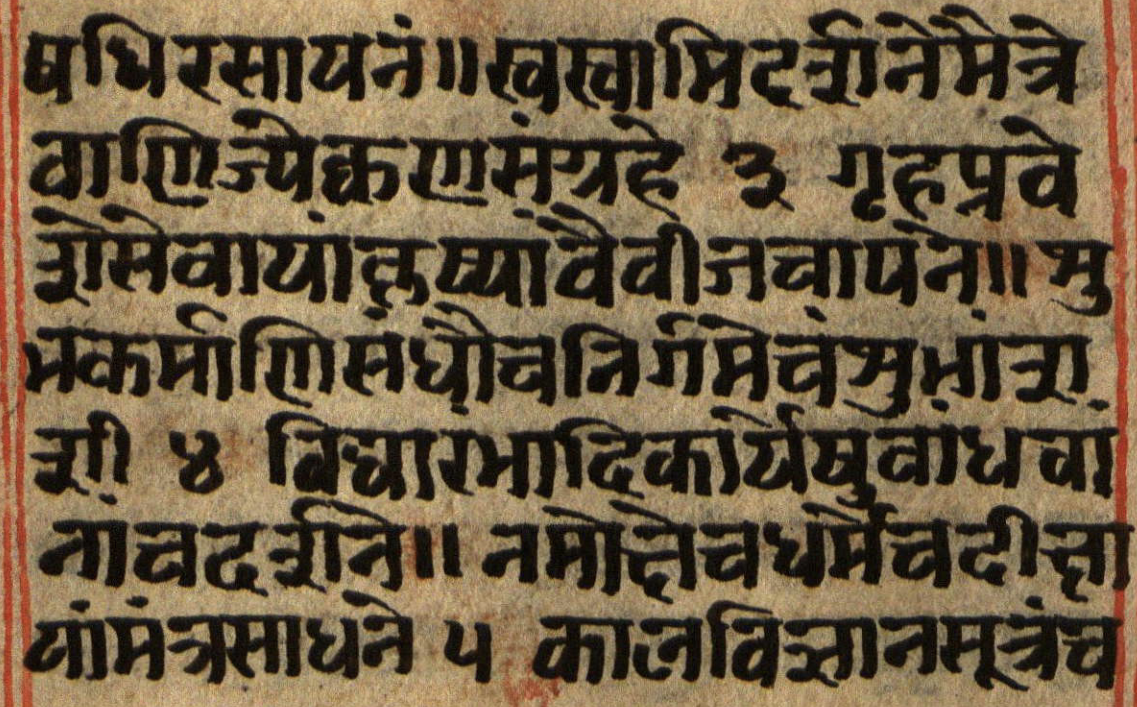 षधिरसायनं॥स्वस्वामिदर्शनेमैत्रे
वाणिज्येकणसंग्रहे ३ गृहप्रवे
शेसेवायांकृष्यांवैवीजवापने॥शु
भकर्माणिसंधौचनिर्गमेचंशुभांश
शी ४ विद्यारंभादिकार्येषुवांधवां
नांचदर्शने॥नमोक्षेचधर्मेचदीक्षा
यांमंत्रसाधने ५ कालविज्ञानसूत्रंच